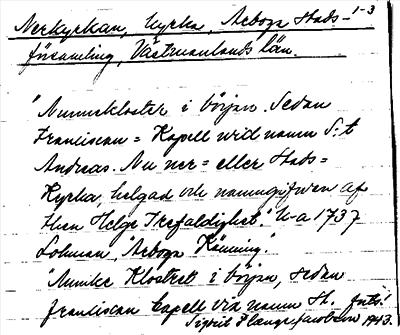 1-3
Nerkyrkan, kyrka, Arboga stads-
församling, Västmanlands län.
"Nunnekloster i början. Sedan
Franciscan= Kapell wid namn S:t
Andreas. Nu ner= eller Stads=
Kyrka, helgad och namngifwen af
then Helge Trefaldighet." U-a 1737
Lohman, "Arboga Känning."
"Nunne Klostret i början, sedan
franciscan Capell vid namn St. forts!
Sigrid Flange Jacobson 1943.